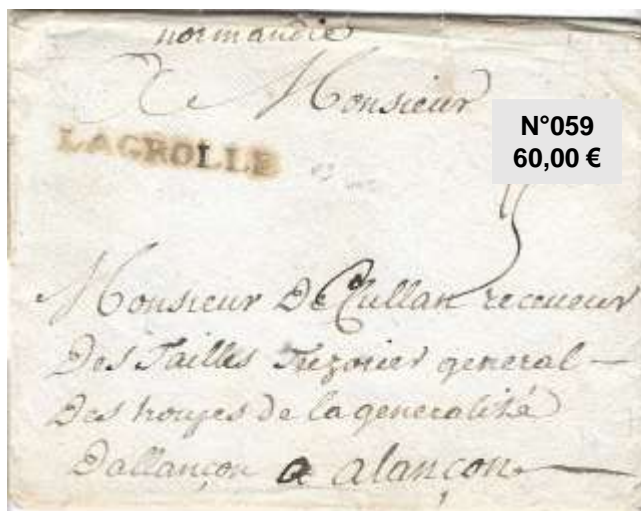 normandie
A Monsieur
LAGROLLE
N°059
60,00 €
Monsieur De Cullan receueur
Des Tailles Trezorier general
Des troupes de la generalité
Dallançon a alançon